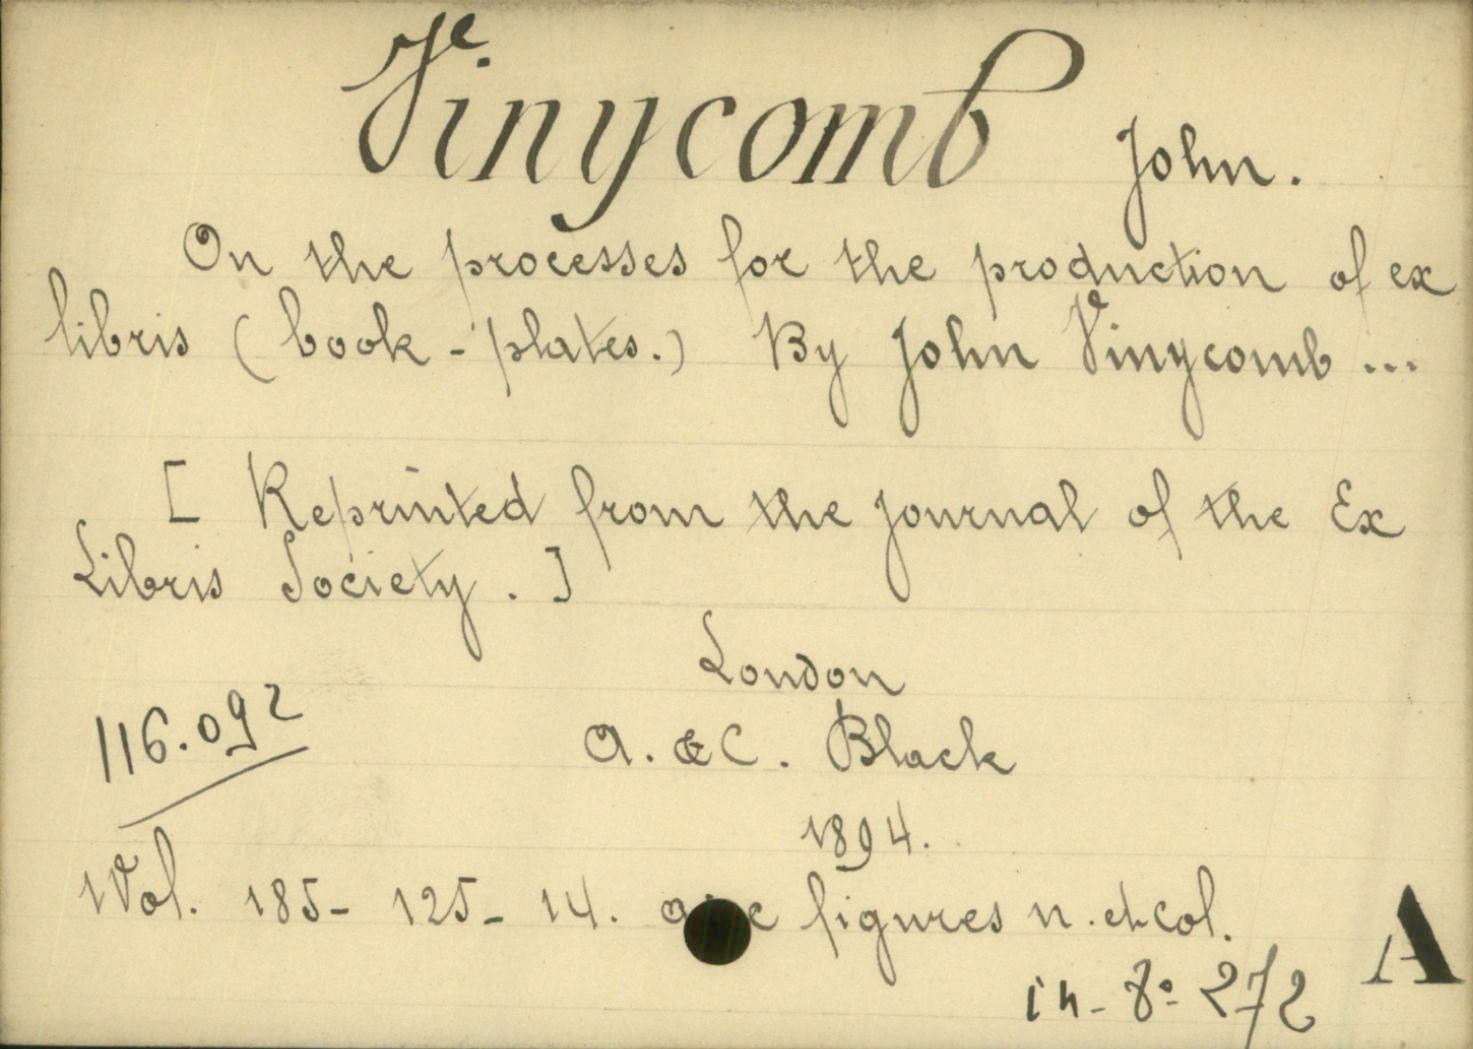 Vinycomb John.
On the processes for the production of ex
libris (book-plates.) By John Vinycomb ...
[Reprinted from the journal of the Ex
Libris Society.]
London
116.092
A. & C. Black
1894.
1 Vol. 185- 125- 14. figures n. et col.
A
in-8º 272